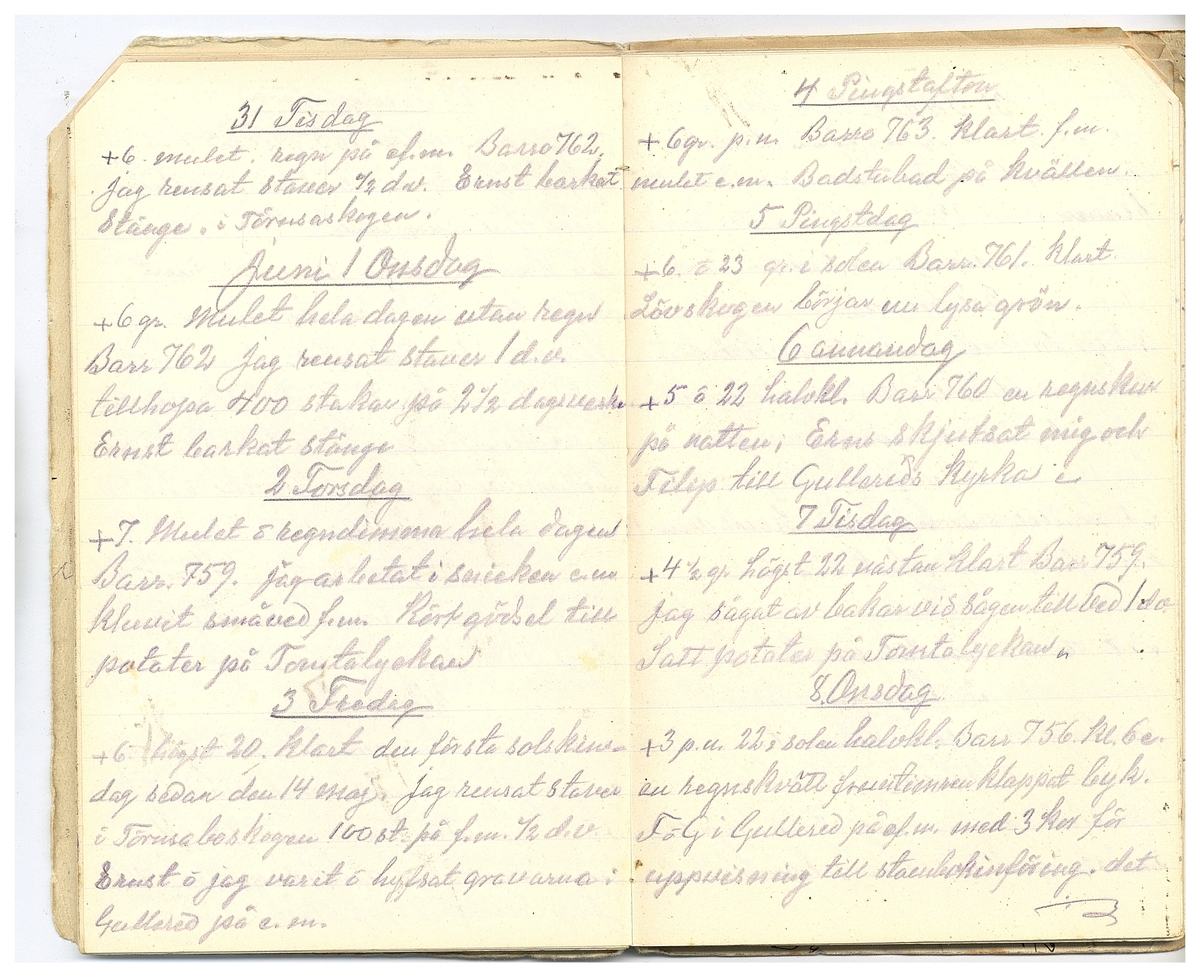 31 Tisdag
+6. mulet. regn på ef.m. Baro 762.
jag rensat staver ½ d.v. Ernst barkat
Stänge. i Törnsaskogen.
Juni 1 Onsdag
+6 gr. Mulet hela dagen utan regn
Barr 762 jag rensat staver 1 d.v.
tillhopa 400 stakar på 2½ dagsverke
Ernst barkat stänge
2 Torsdag
+7. Mulet o regndimma hela dagen
Barr. 759. jag arbetat i snickeri e.m
kluvit småved f.m. Kört gödsel till
potater på Tomtalyckan
3 Fredag
+6 högst 20. Klart den första solskins-
dag sedan den 14 maj. Jag rensat staver
i Törnsaboskogen 100 st. på f.m. ½ d.v.
Ernst o jag varit o hyfsat gravarna i
Gullered på e.m.
4 Pingstafton
+6 gr. p.m. Barro 763. Klart f.m.
mulet e.m. Badstubad på kvällen.
5 Pingstdag
+6. o 23 gr. i solen Barr. 761. Klart.
Lövskogen börjar nu lysa grön.
6 annandag
+5 o 22 halvkl. Barr 760 en regnskur
på natten; Erns skjutsat mig och
Filip till Gullereds Kyrka
7 Tisdag
+4 ½ gr högst 22 nästan klart Barr 759.
jag sågat av bakar vid sågen till ved 1 dv
Satt potater på Tomtalyckan
8. Onsdag
+3 p.m. 22 i solen halvkl. Barr 756. Kl. 6 e.
en regnskvätt fruntimren klappat byk.
Följ i Gullered på ef.m. med 3 kor för
uppvisning till stambokinföring. det